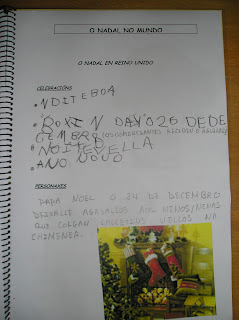 O NADAL NO MUNDO
O NADAL EN REINO UNIDO
CELEBRACIÓNS
• NOITEBOA
• BOXIN DAY O 26 DE DE
CEMBRO (OS COMERCIANTES RECIBEN
• NOITEVELLA
• ANO NOVO
PERSONAXES
PAPA NOEL O 24 DE DECEMBRO
DEIXALLE AGASALLOS AOS NENOS/NENAS
QUE COLGAN CALCETÍNS VELLOS NA
CHIMENEA.